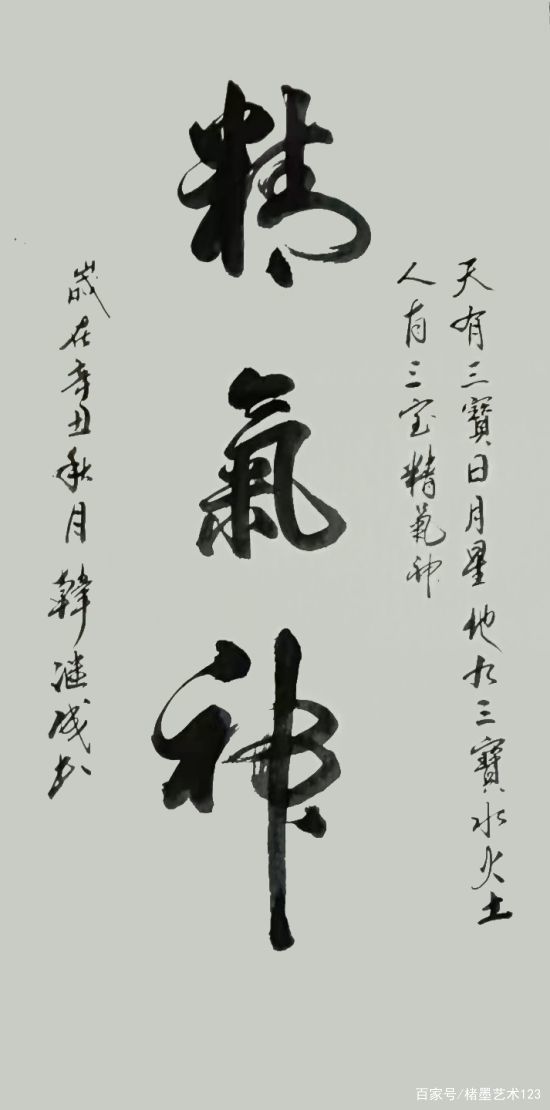 天有三寶日月星地有三寶水火土
人有三宝精氣神
精氣神
歲在辛丑秋月韓連成書
百家号/楮墨艺术123